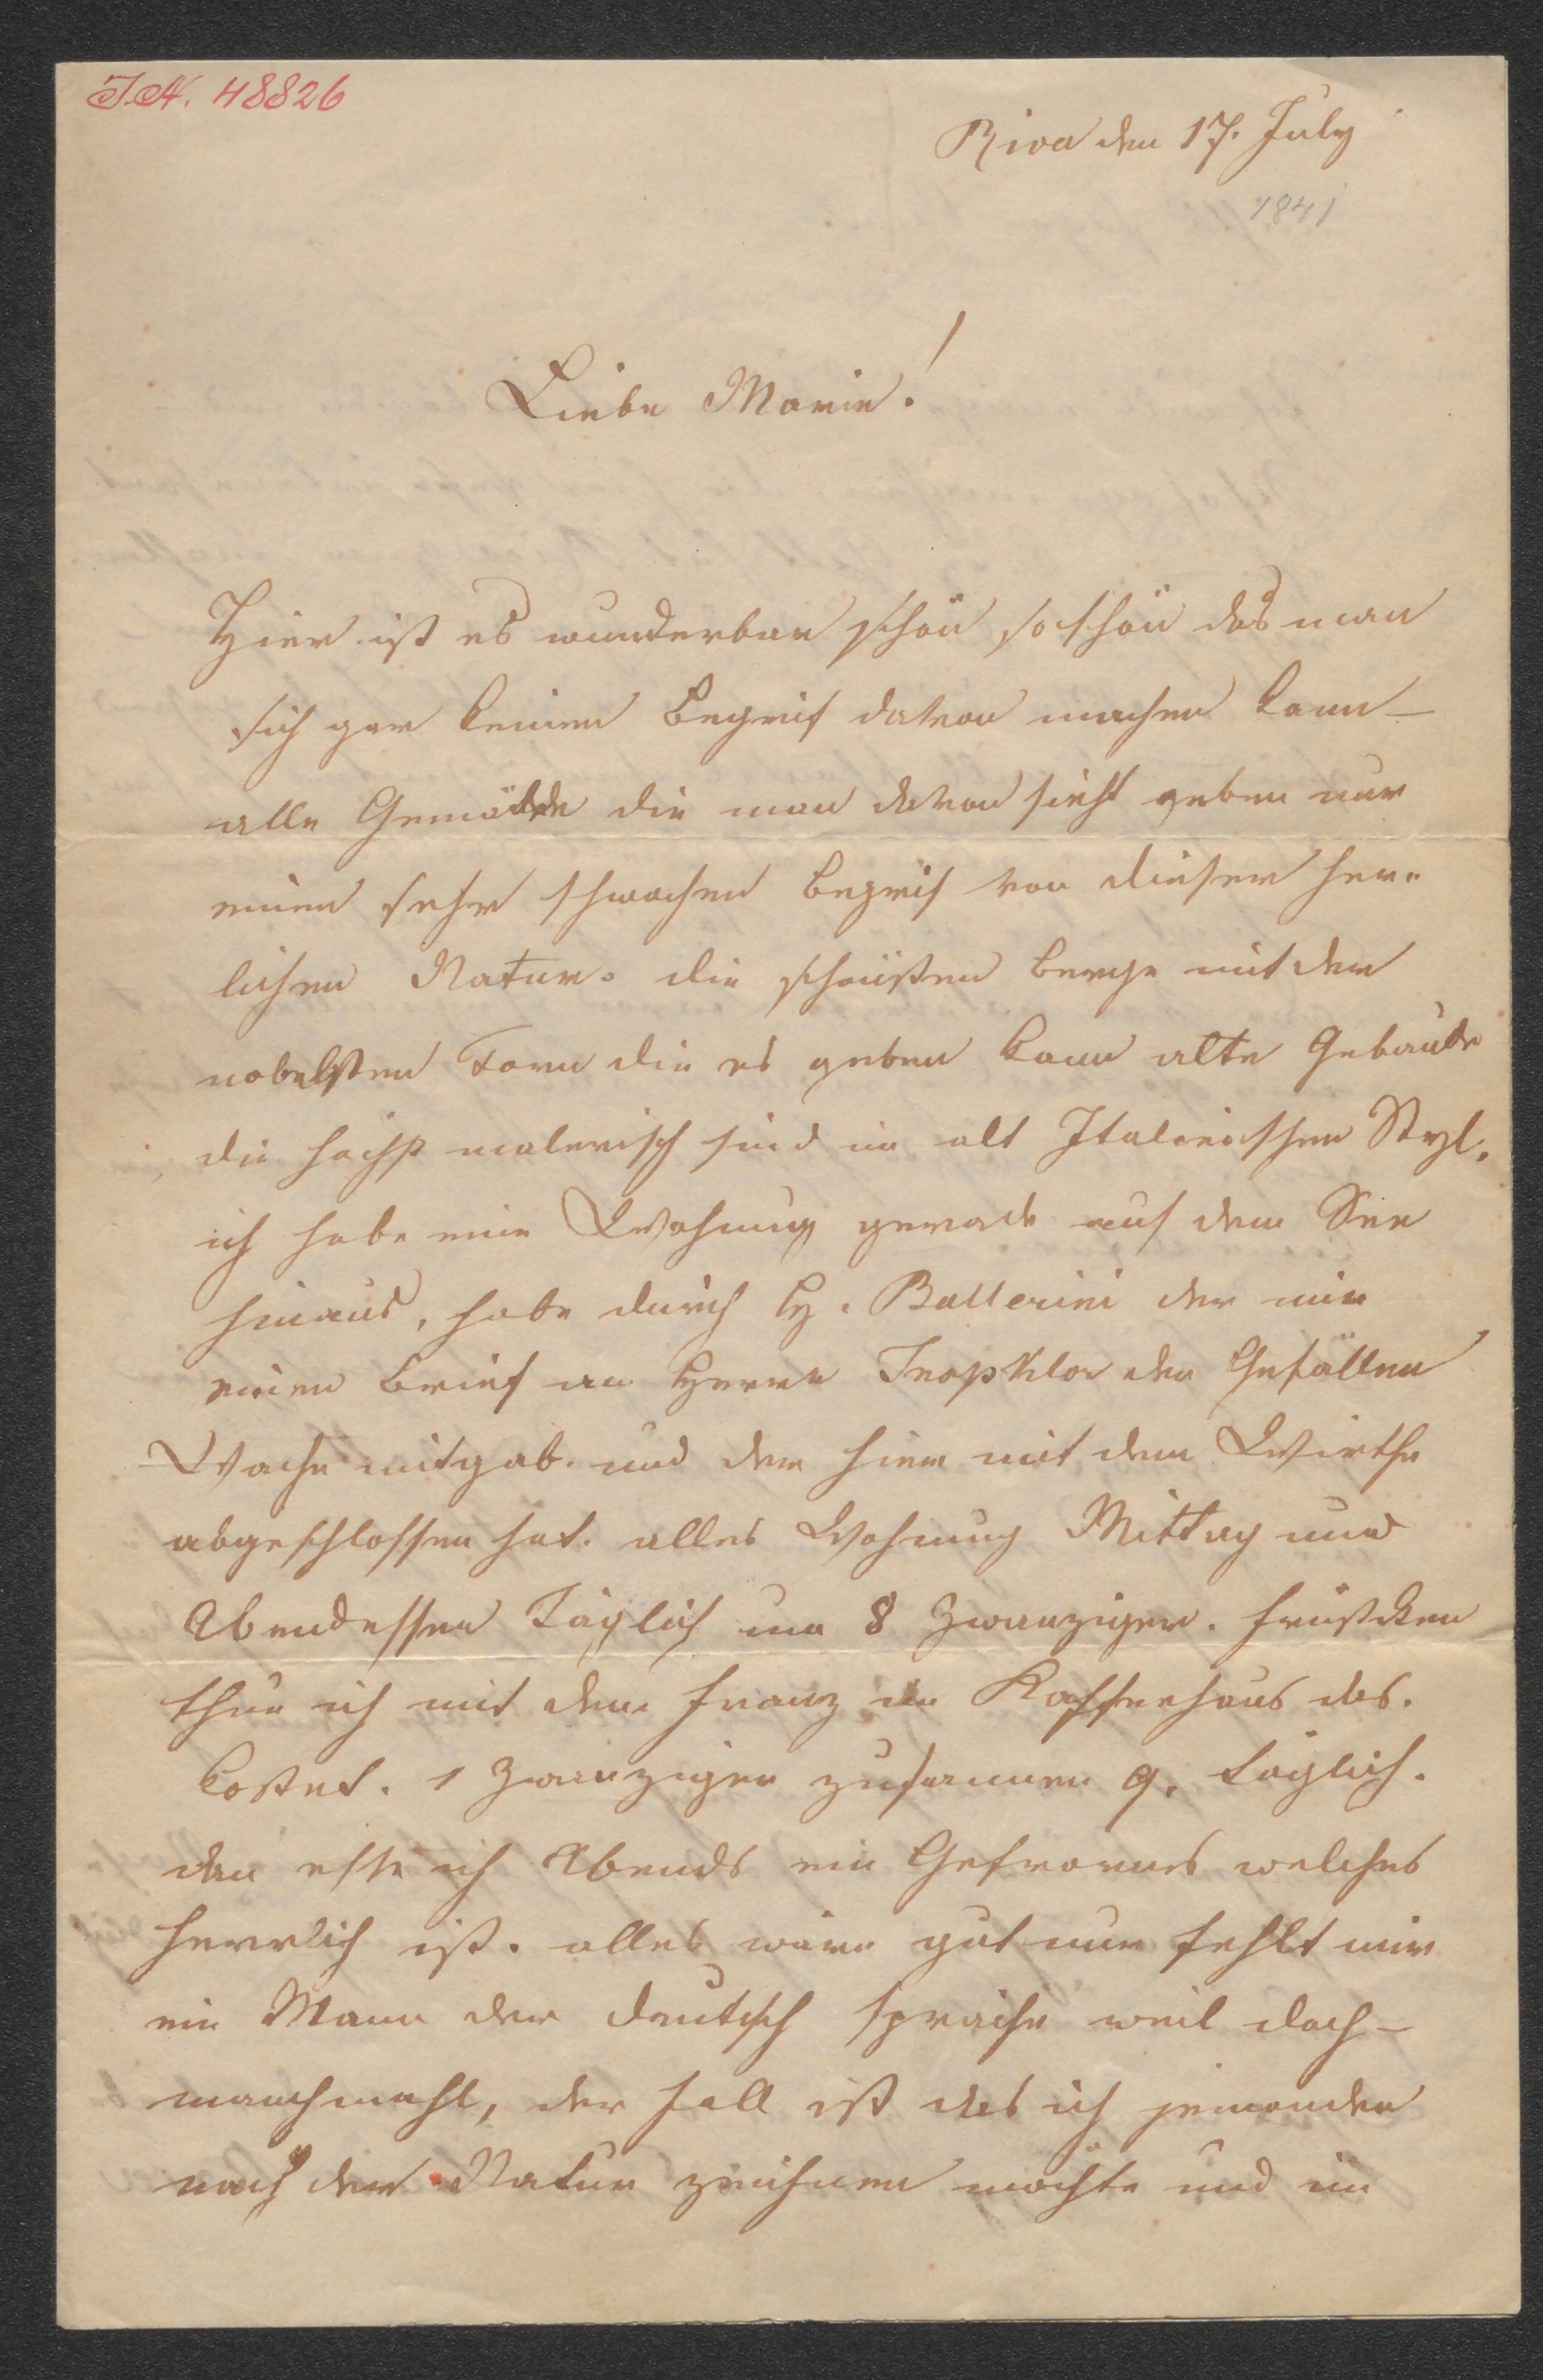 I.N. 48826
Riva den 17. July
1841
Liebe Marie!
Hier ist es wunderbar schön so schön das man
sich gar keinen Begrif davon machen kann –
alle Gemälde die man davon sieht geben nur
einen sehr schwachen Begrif von dieser her=
lichen Natur. die schönsten Berge mit der
nobelsten Form die es geben kann alte Gebäude
die höchst malerisch sind im alt Italienischen Styl.
ich habe eine Wohnung gerade auf dem See
hinaus, habe durch H. Ballerini der mir
einen Brief an Herrn der Gefällen
Wache mitgab. und der hier mit dem Wirthe
abgeschlossen hat. alles Wohnung Mittag und
Abendessen Täglich um 8 Zwanziger. früstken
thue ich mit dem Franz im Kaffeehaus das.
kostet. 1 Zwanziger zusammen 9. täglich.
dan esse ich Abends ein Gefrornes welches
herrlich ist. alles wäre gut nur fehlt mir
ein Mann der deutsch spräche weil doch –
manchmahl, der fall ist das ich jemanden
nach der Natur zeichnen möchte und im